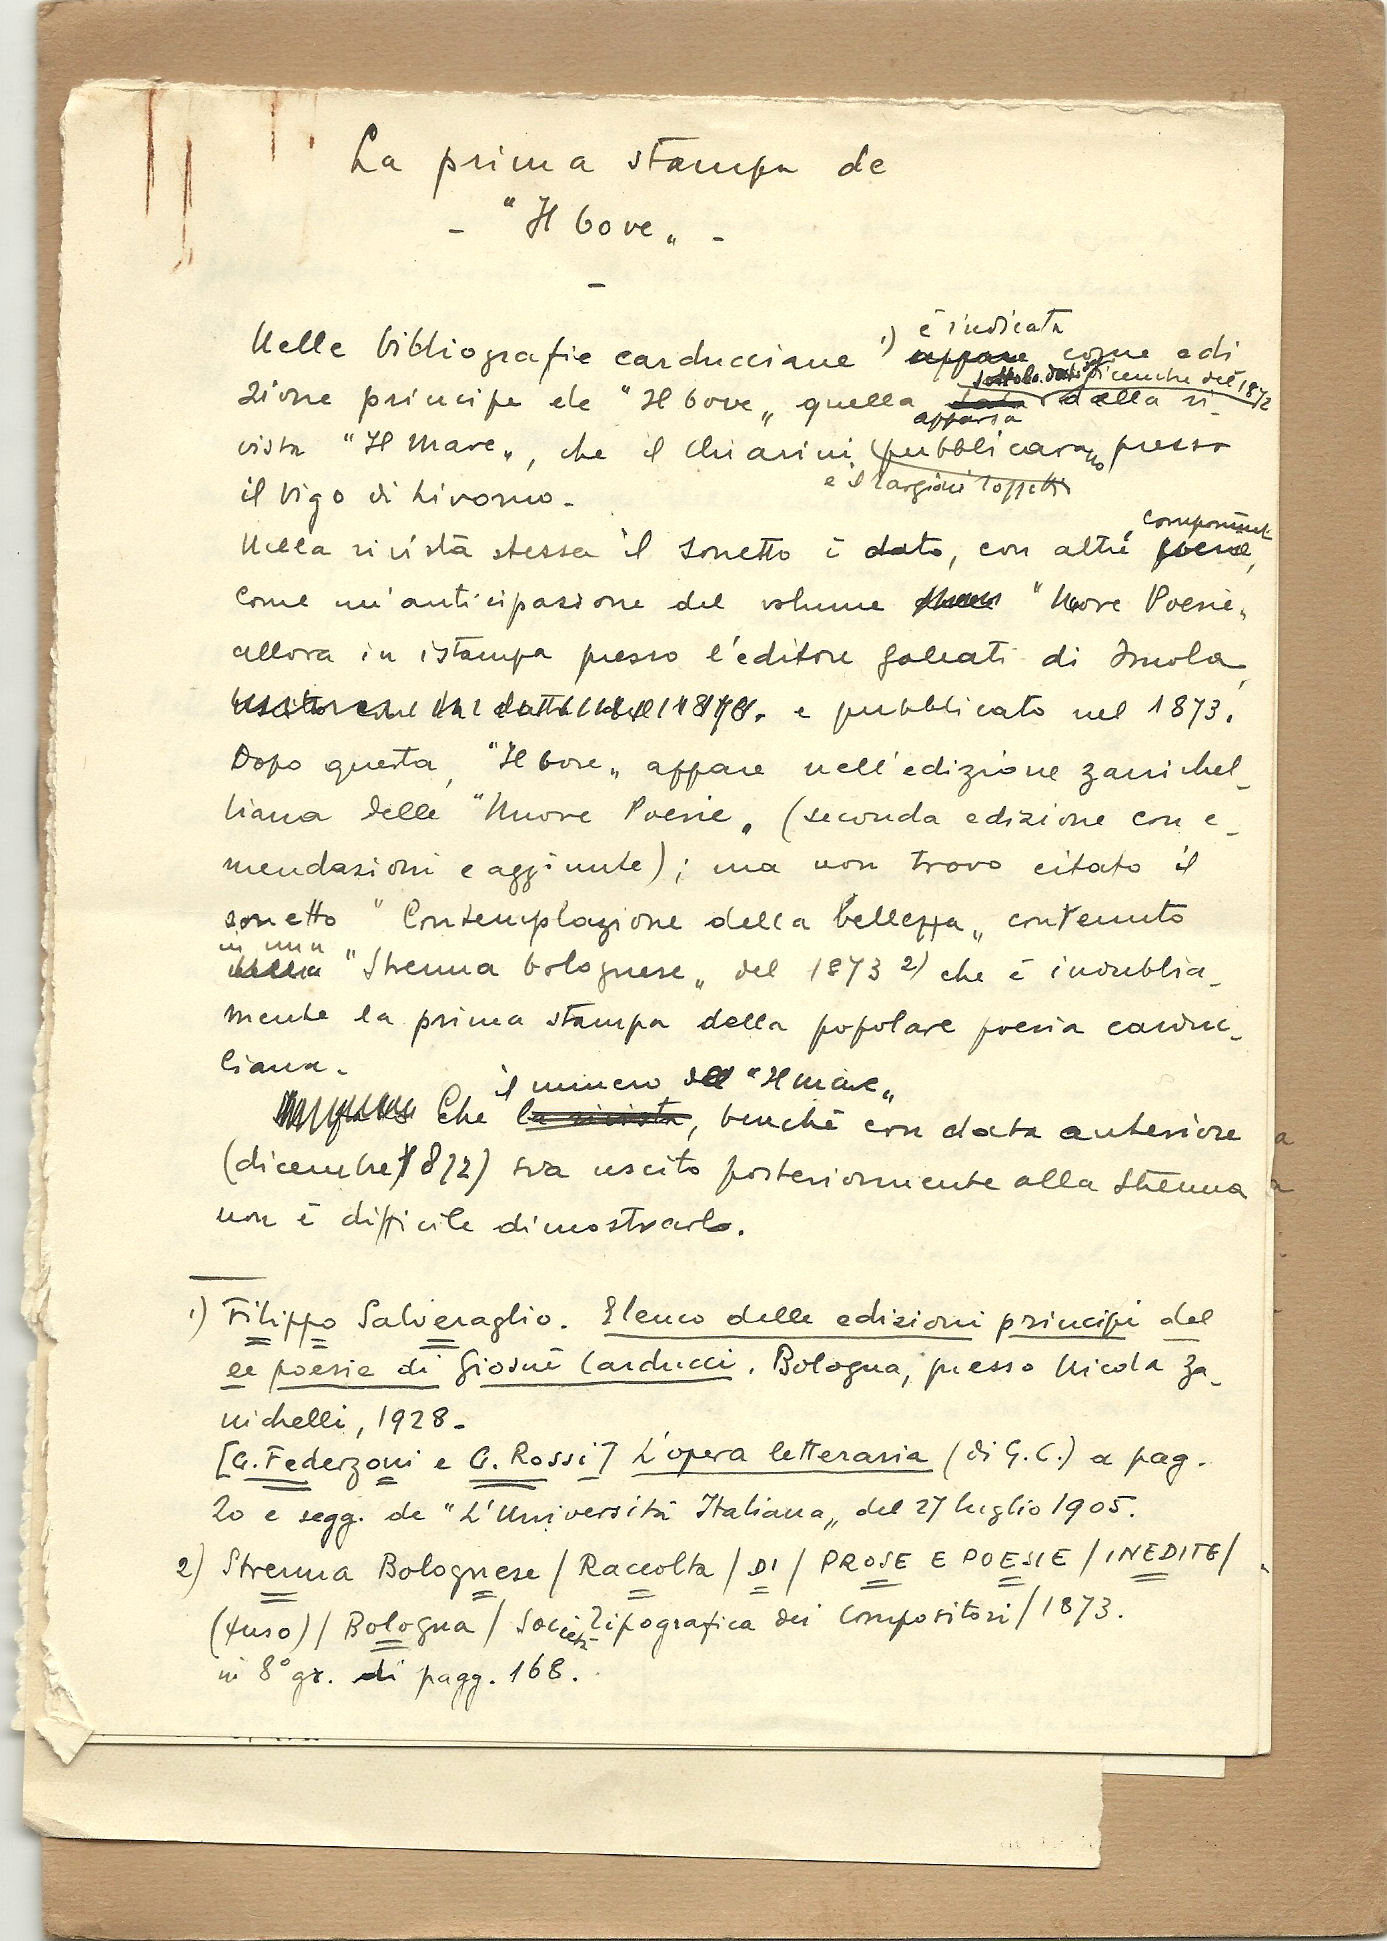 La prima stampa de
- "Il bove„ -
Nelle bibliografie carducciane 1) è indicata come edi
zione principe de "Il bove„ quella apparsa dicembre del 1872 della ri-
vista "Il Mare„, che il Chiarini e il Targioni Tozzetti pubblicarano presso
il Vigo di Livorno.
Nella rivista stessa il sonetto è dato, con altri componimenti,
come un'anticipazione del volume "Nuove Poesie„
allora in istampa presso l'editore Galeati di Imola,
e pubblicato nel 1873.
Dopo questa, "Il bove„ appare nell'edizione zanichel-
liana delle "Nuove Poesie„ (seconda edizione con e-
mendazioni e aggiunte); ma non trovo citato il
sonetto "Contemplazione della bellezza„ contenuto
in una "Strenna bolognese„ del 1873 2) che è indubbia-
mente la prima stampa della popolare poesia carduc-
ciana.
Che il numero del "Il mare„, benché con data anteriore
(dicembre 1872) sia uscito posteriormente alla Strenna
non è difficile dimostrarlo.
1) Filippo Salveraglio. Elenco delle edizioni principi del
le poesie di Giosuè Carducci. Bologna, presso Nicola Za-
nichelli, 1928.-
[G. Federzoni e G. Rossi] L'opera letteraria (di G. C.) a pag.
20 e segg. de "L'Università Italiana„ del 27 luglio 1905.
2) Strenna Bolognese / Raccolta / DI / PROSE E POESIE / INEDITE /
(fuso) / Bologna / Società Tipografica dei Compositori / 1873.
in 8° gr. di pagg. 168.